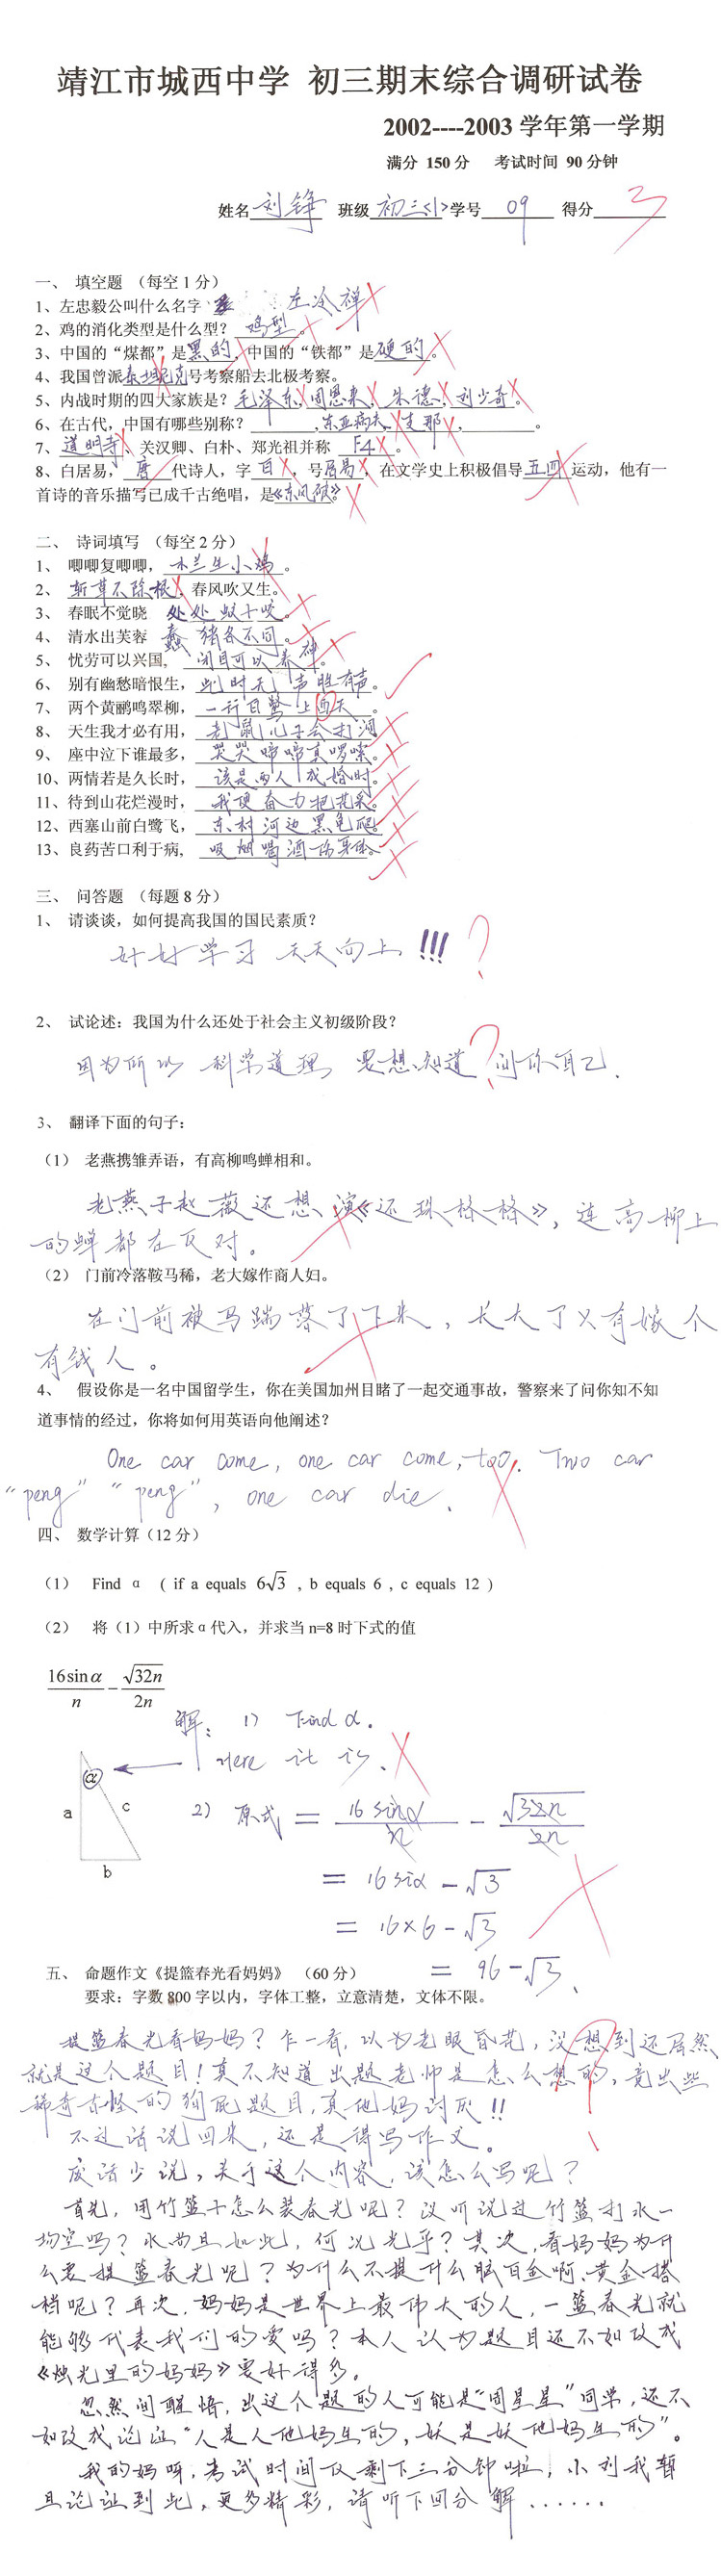 靖江市城西中学 初三期末综合调研试卷
2002----2003 学年第一学期
满分 150 分 考试时间 90 分钟
姓名 刘铮 班级 初三<1> 学号 09 得分 3
一、 填空题 （每空 1 分）
1、左忠毅公叫什么名字 左冷禅
2、鸡的消化类型是什么型？ 鸡型 。
3、中国的“煤都”是黑的，中国的“铁都”是硬的。
4、我国曾派泰坦尼克号考察船去北极考察。
5、内战时期的四大家族是？毛泽东，周恩来，朱德，刘少奇。
6、在古代，中国有哪些别称？ ，东亚病夫，支那， 。
7、道明寺、关汉卿、白朴、郑光祖并称 F4 。
8、白居易，唐代诗人，字 白 ，号居易，在文学史上积极倡导五四运动，他有一
首诗的音乐描写已成千古绝唱，是《东风破》。
二、 诗词填写 （每空 2 分）
1、 唧唧复唧唧，木兰生小鸡。
2、 斩草不除根，春风吹又生。
3、 春眠不觉晓 处处蚊子咬。
4、 清水出芙蓉 蠢猪各不同。
5、 忧劳可以兴国，闭目可以养神。
6、 别有幽愁暗恨生，此时无声胜有声。
7、 两个黄鹂鸣翠柳，一行白鹭上西天。
8、 天生我才必有用，老鼠儿子会打洞
9、 座中泣下谁最多，哭哭啼啼真啰嗦。
10、两情若是久长时，该是两人成婚时。
11、待到山花烂漫时，我便奋力把花采。
12、西塞山前白鹭飞，东村河边黑龟爬。
13、良药苦口利于病，吸烟喝酒伤身体。
三、 问答题 （每题 8 分）
1、 请谈谈，如何提高我国的国民素质？
好好学习 天天向上 !!! ?
2、 试论述：我国为什么还处于社会主义初级阶段？
因为所以 科学道理 要想知道 问你自己.
3、 翻译下面的句子：
（1） 老燕携雏弄语，有高柳鸣蝉相和。
老燕子赵薇还想演《还珠格格》，连高柳上
的蝉都在反对。
（2） 门前冷落鞍马稀，老大嫁作商人妇。
在门前被马踹落了下来，长大了只有嫁个
有钱人。
4、 假设你是一名中国留学生，你在美国加州目睹了一起交通事故，警察来了问你知不知
道事情的经过，你将如何用英语向他阐述？
One car come, one car come, too. Two car
“peng” “peng”, one car die.
四、 数学计算（12 分）
（1） Find α ( if a equals 6√3 , b equals 6 , c equals 12 )
（2） 将（1）中所求α代入，并求当 n=8 时下式的值
16sinα/n - √32n/2n
解: 1) Find α.
Here it is.
α
a c
b
2) 原式 = 16sinα/n - √32n/2n
= 16siα - √3
= 16×6 - √3
= 96 - √3.
五、 命题作文《提篮春光看妈妈》 （60 分）
要求：字数 800 字以内，字体工整，立意清楚，文体不限。
提篮春光看妈妈？乍一看，以为老眼昏花，没想到还居然
就是这个题目！真不知道出题老师是怎么想的，竟出些
稀奇古怪的狗屁题目，真他妈讨厌!!
不过话说回来，还是得写作文。
废话少说，关于这个内容，该怎么写呢？
首先，用竹篮子怎么装春光呢？没听说过竹篮打水一
场空吗？水尚且如此，何况光乎？其次，看妈妈为什
么要提篮春光呢？为什么不提什么脑白金啊、黄金搭
档呢？再次，妈妈是世界上最伟大的人，一篮春光就
能够代表我们的爱吗？本人认为题目还不如改成
《烛光里的妈妈》要好得多。
忽然间醒悟，出这个题的人可能是“周星星”同学，还不
如改成论证“人是人他妈生的，妖是妖他妈生的”。
我的妈呀，考试时间仅剩下三分钟啦，小刘我暂
且论证到此，更多精彩，请听下回分解......